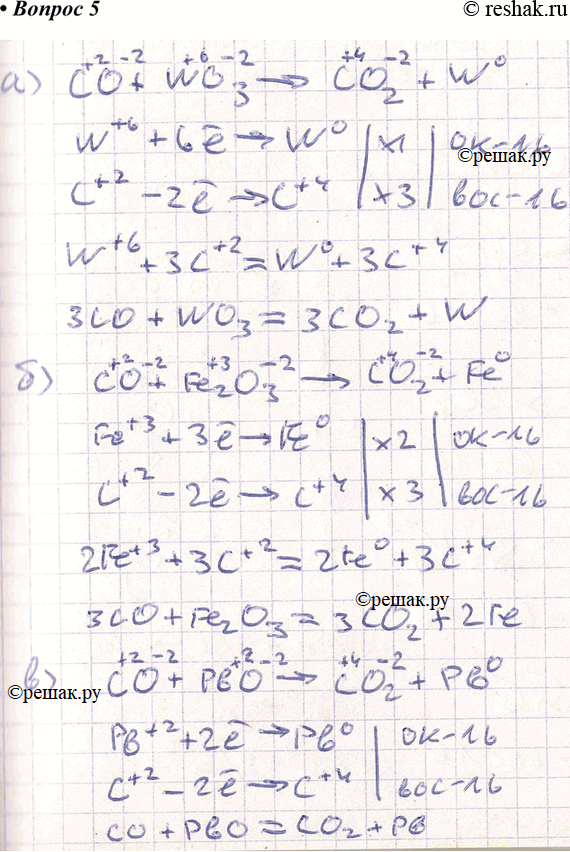 • Вопрос 5
© reshak.ru
а) C⁺²O⁻² + W⁺⁶O₃⁻² → C⁺⁴O₂⁻² + W⁰
W⁺⁶ + 6ē → W⁰ | ×1 | ок-ль
©решак.ру
C⁺² - 2ē → C⁺⁴ | ×3 | вос-ль
W⁺⁶ + 3C⁺² = W⁰ + 3C⁺⁴
3CO + WO₃ = 3CO₂ + W
б) C⁺²O⁻² + Fe₂⁺³O₃⁻² → C⁺⁴O₂⁻² + Fe⁰
Fe⁺³ + 3ē → Fe⁰ | ×2 | ок-ль
C⁺² - 2ē → C⁺⁴ | ×3 | вос-ль
2Fe⁺³ + 3C⁺² = 2Fe⁰ + 3C⁺⁴
©решак.ру
3CO + Fe₂O₃ = 3CO₂ + 2Fe
в) C⁺²O⁻² + Pb⁺²O⁻² → C⁺⁴O₂⁻² + Pb⁰
©решак.ру
Pb⁺² + 2ē → Pb⁰ | ок-ль
C⁺² - 2ē → C⁺⁴ | вос-ль
CO + PbO = CO₂ + Pb